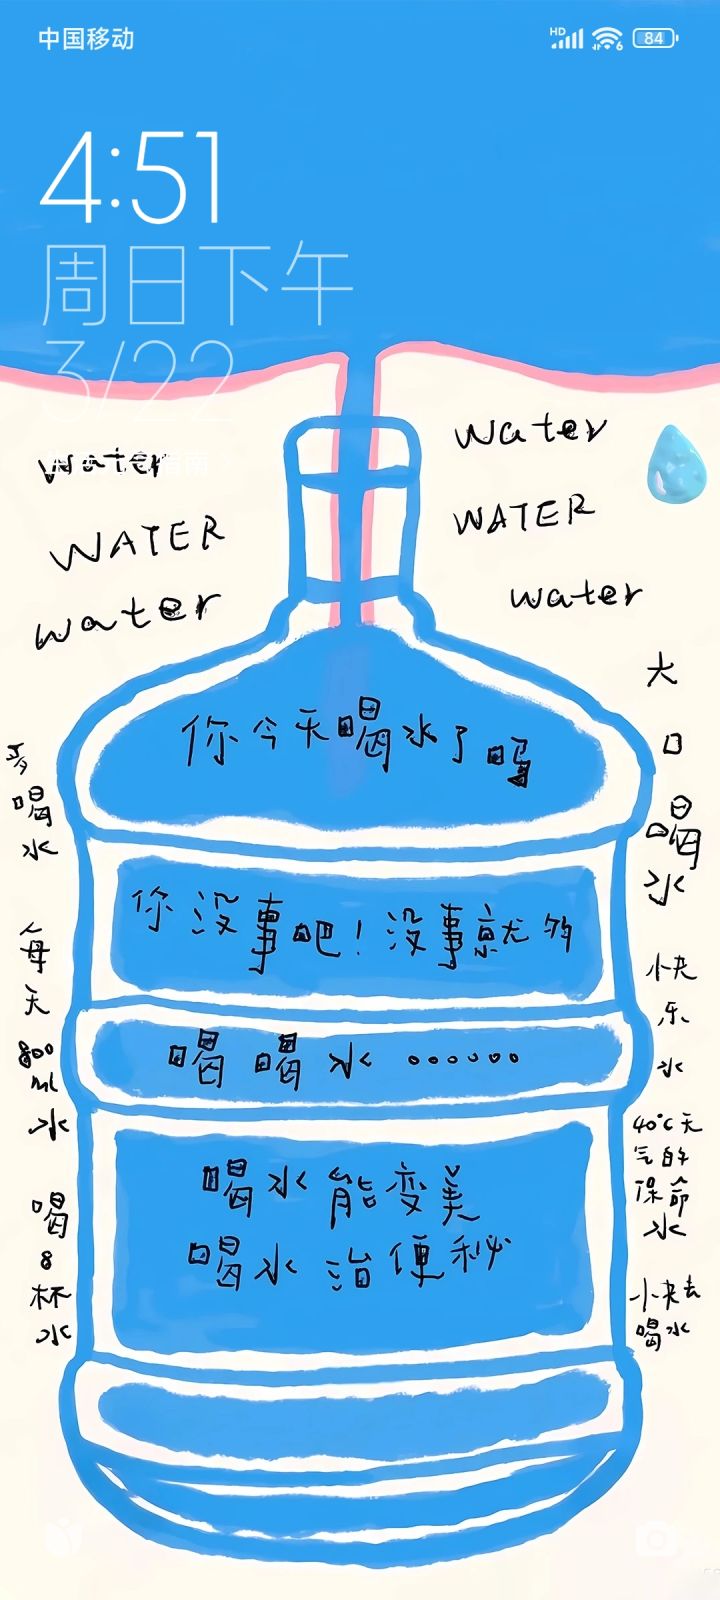 中国移动
HD
6
84
4:51
周日下午
3/22
water
WATER
water
water
WATER
water
你今天喝水了吗
你没事吧！没事就多
喝喝水。。。。。。
喝水能变美
喝水治便秘
多
喝
水
每
天
800
ml
水
喝
8
杯
水
大
口
喝
水
快
乐
水
40℃天
气的
保命
水
快去
喝水